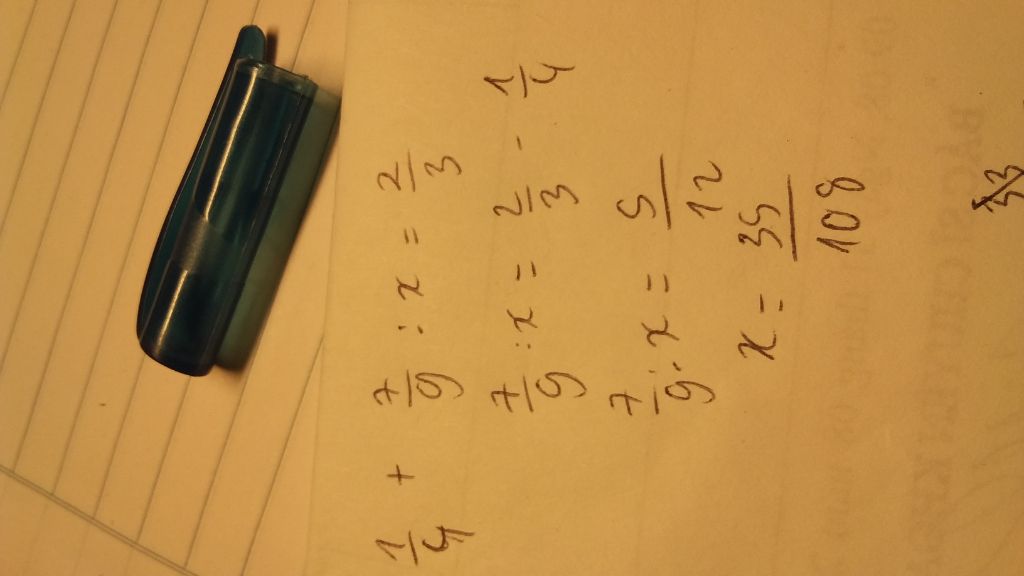 1/4 + 7/9 : x = 2/3
7/9 : x = 2/3 - 1/4
7/9 : x = 5/12
x = 35/108